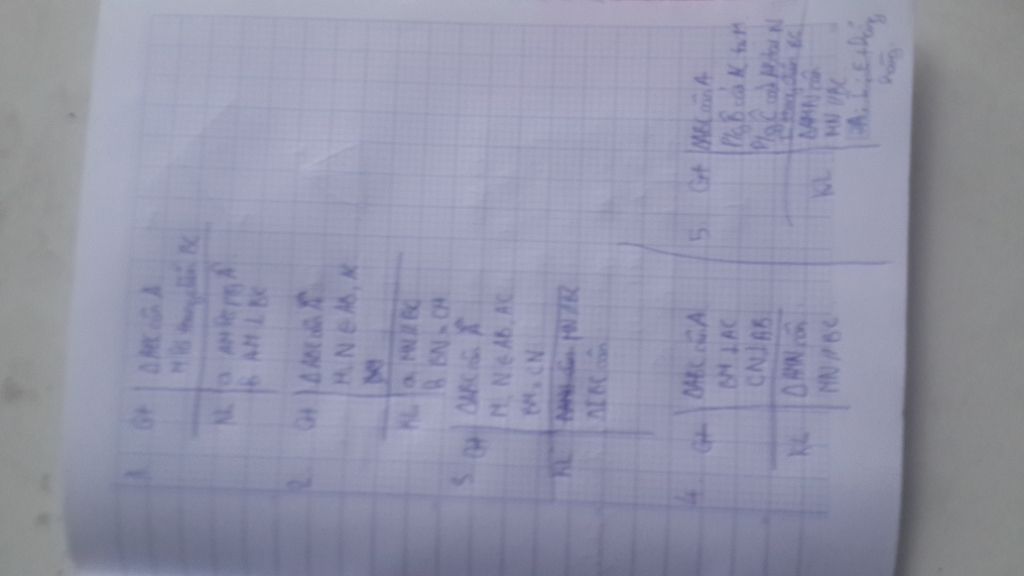 1
GT
ΔABC cân A
M là trung điểm BC
KL
a AM là PG Â
b AM ⊥ BC
2
GT
ΔABC cân Â
M, N ∈ AB, AC
KL
a MN // BC
b BN = CM
3
GT
ΔABC cân Â
M, N ∈ AB, AC
BM = CN
KL
MN // BC
ΔIBC cân
4
GT
ΔABC cân A
BM ⊥ AC
CN ⊥ AB
KL
ΔAMN cân
MN // BC
5
GT
ΔABC cân A
PG B̂ cắt AC tại M
PG Ĉ cắt AB tại N
trung điểm BC
KL
ΔAMN cân
MN // BC
thẳng
hàng